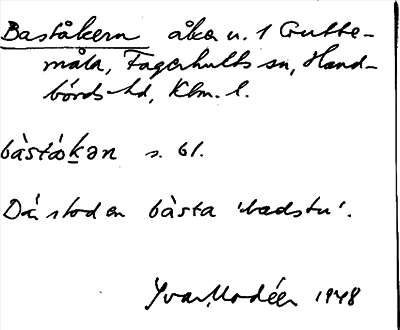 Baståkern åker u. 1 Gutte-
måla, Fagerhults sn, Hand-
börds hd, Klm. l.
bàståkən s. 61.
Där stod en bàsta 'badstu'.
Yvar Modéer 1948